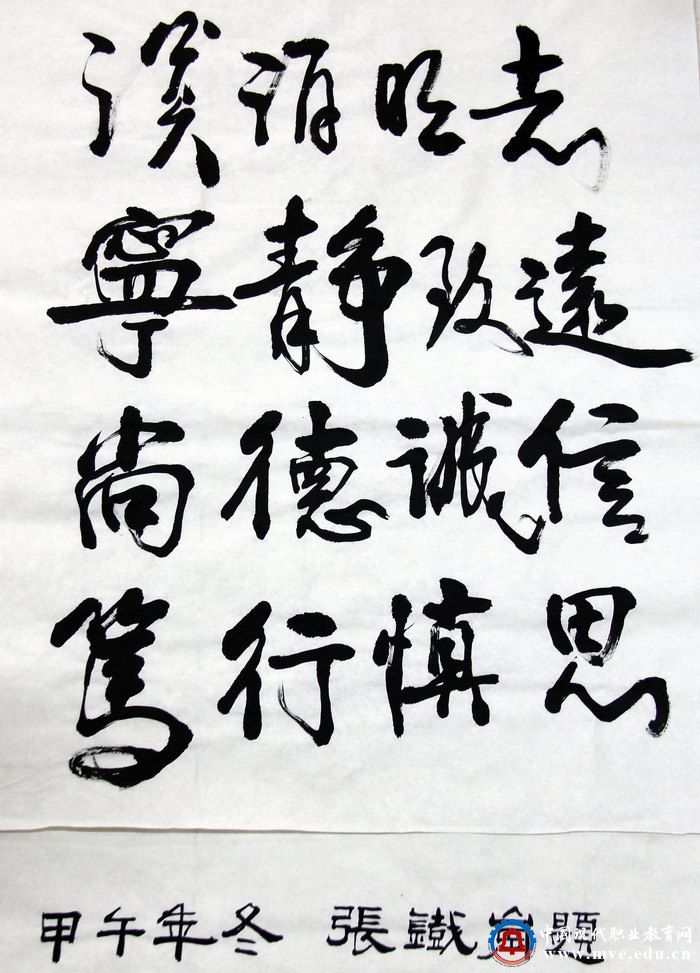 淡泊明志
寧靜致遠
尚德誠信
篤行慎思
甲午年冬 張鐵 題
中国现代职业教育网
www.mve.edu.cn